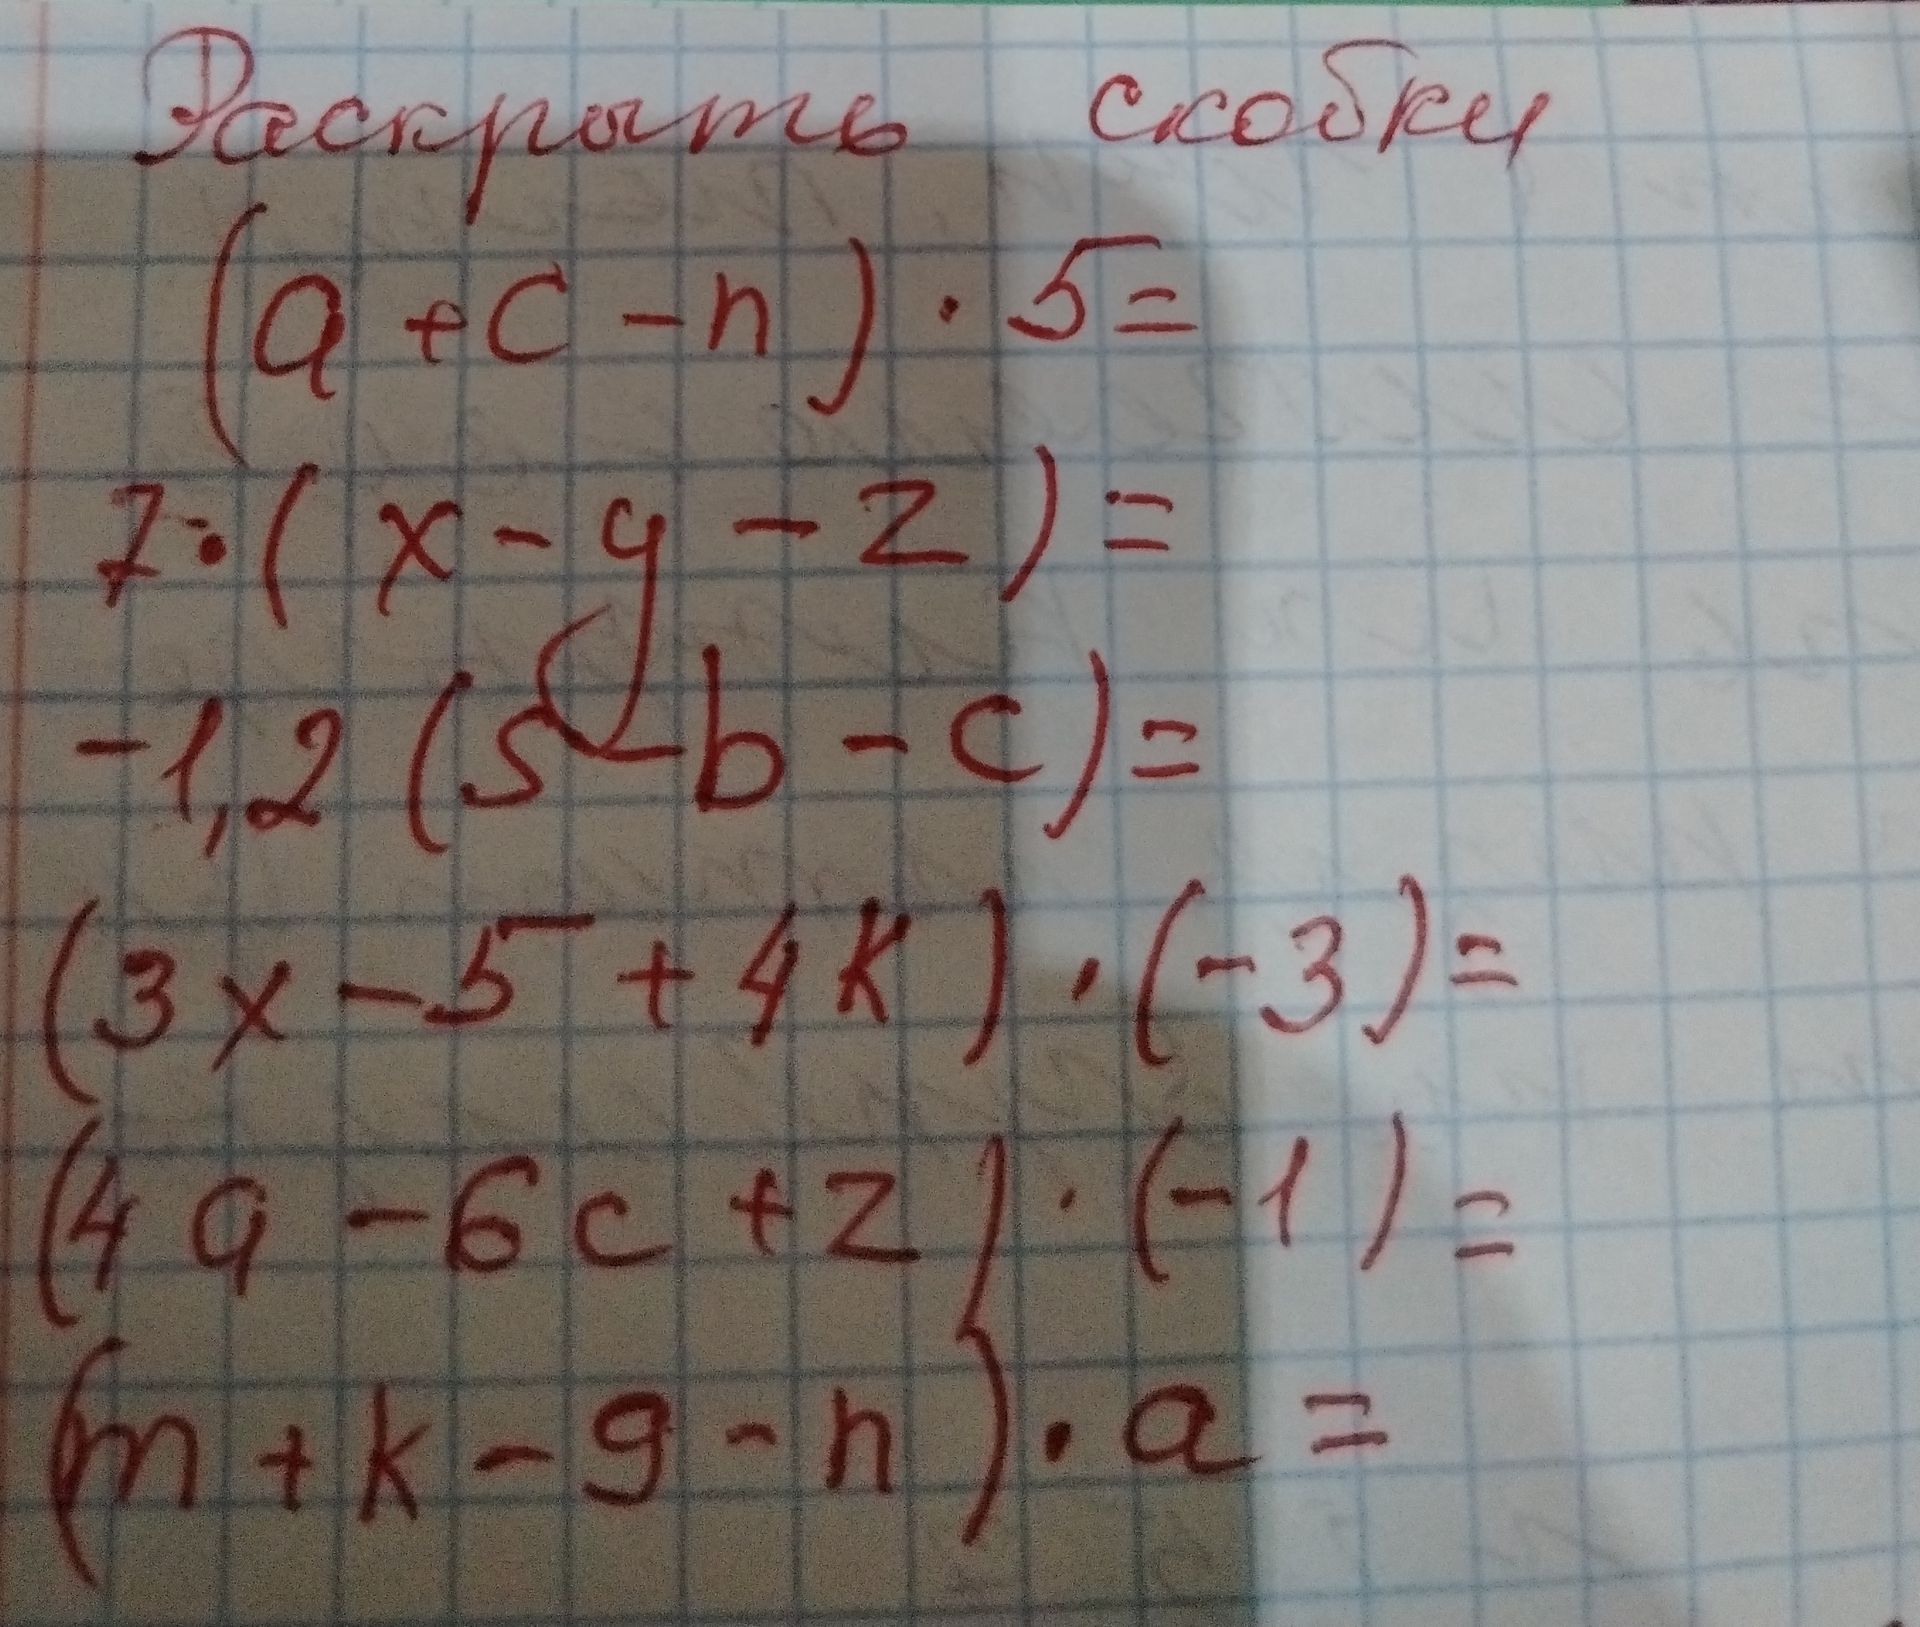 Раскрыть скобки
(a + c - n) · 5 =
7 · (x - y - z) =
-1,2 (5 - b - c) =
(3x - 5 + 4k) · (-3) =
(4a - 6c + z) · (-1) =
(m + k - g - n) · a =